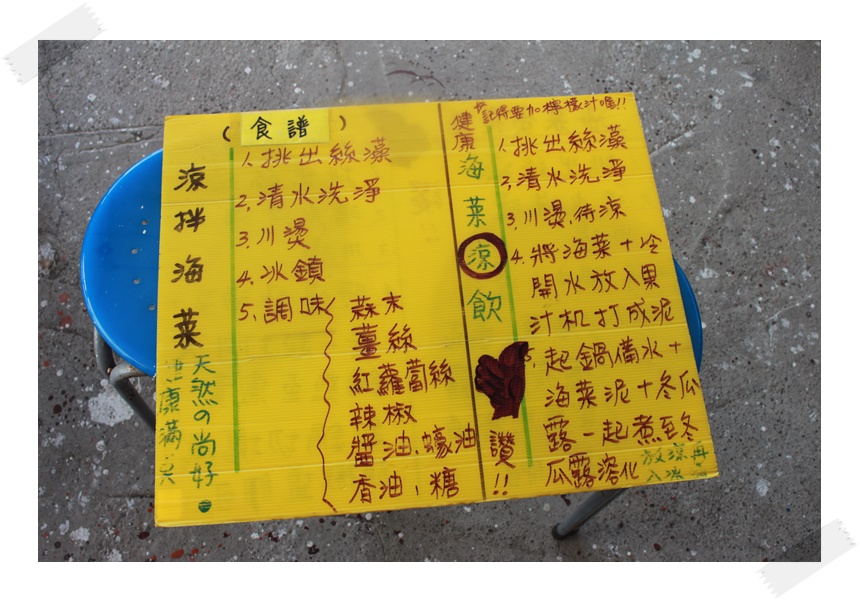 (食譜)
涼拌海菜
天然の尚好
健康滿分
1.挑出絲藻
2.清水洗淨
3.川燙
4.冰鎮
5.調味
蒜末
薑絲
紅蘿蔔絲
辣椒
醬油、蠔油
香油,糖
健康海菜涼飲
讚!!
記得要加檸檬汁喔!!
1.挑出絲藻
2.清水洗淨
3.川燙、待涼
4.將海菜+冷
開水放入果
汁机打成泥
5.起鍋備水+
海菜泥+冬瓜
露一起煮至冬
瓜露溶化
放涼再
入冰